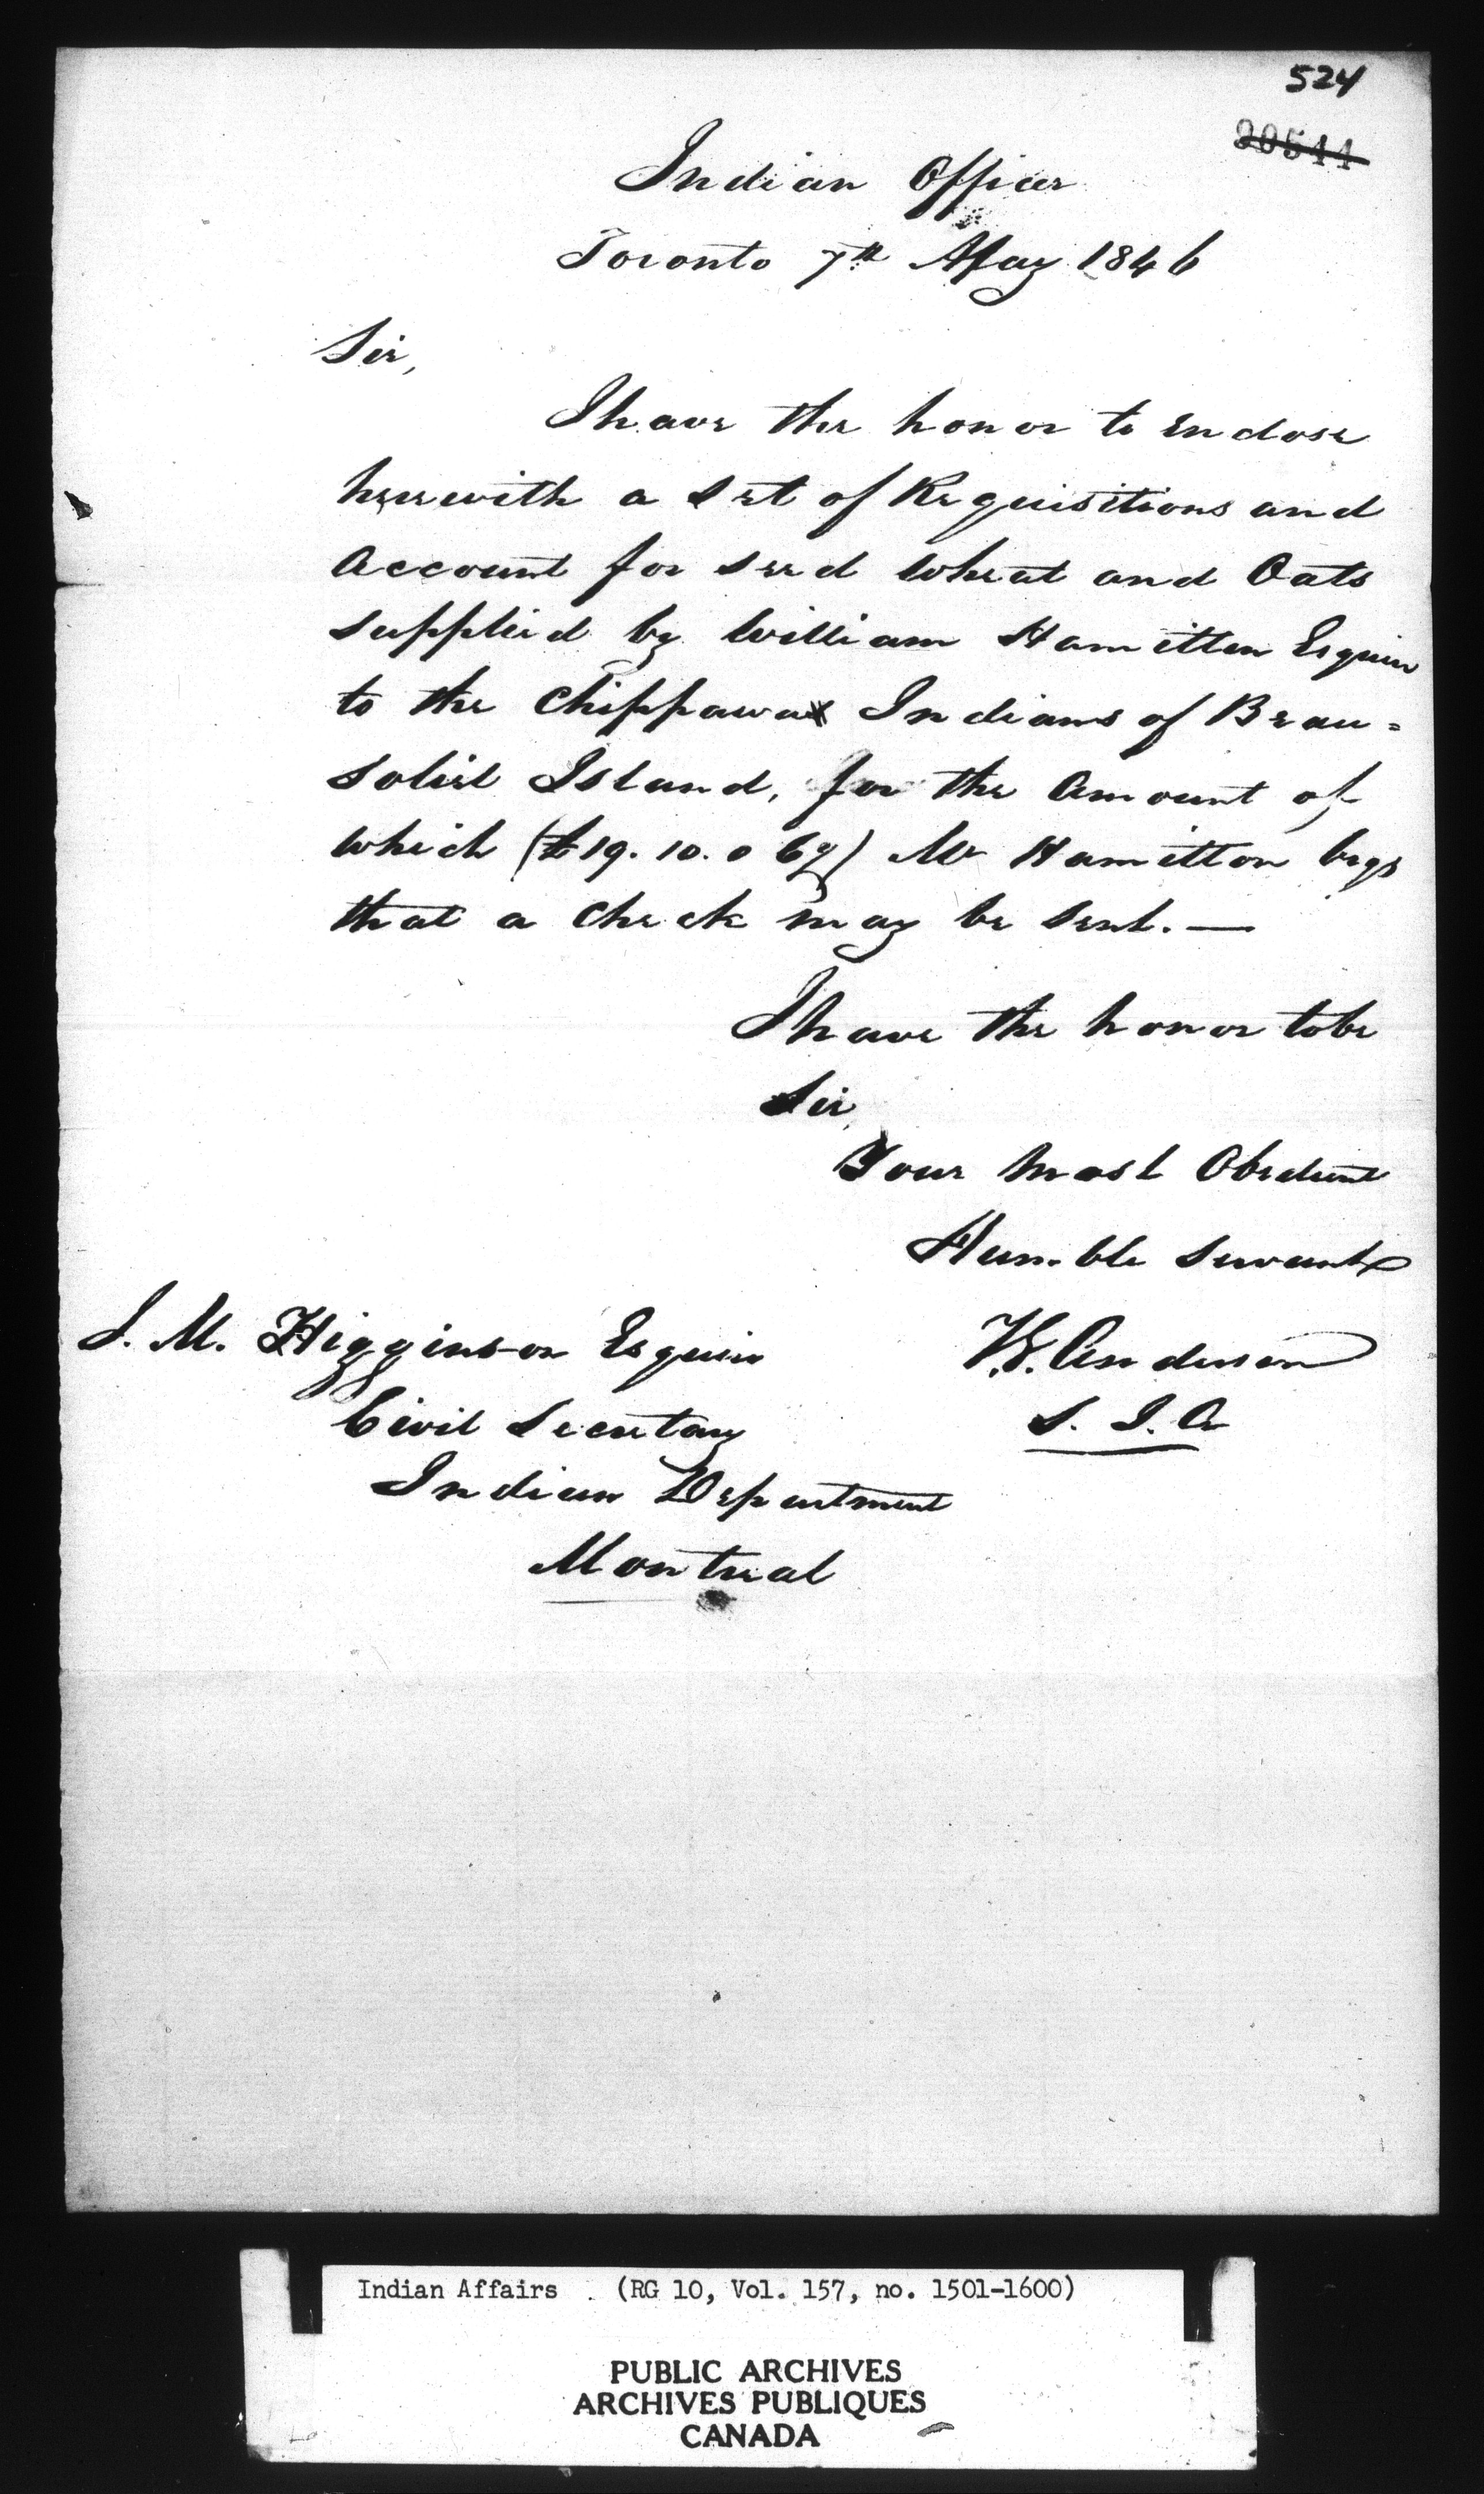 524
20544
Indian Office
Toronto 7th May 1846
Sir,
I have the honor to enclose
herewith a set of Requisitions and
Account for seed Wheat and Oats
supplied by William Hamilton Esquire
to the Chippawa Indians of Beau=
soliel Island, for the Amount of
which (£19.10.0 Cy) Mr Hamilton begs
that a Check may be sent. —
I have the honor to be
Sir,
Your Most Obedient
Humble Servant
J. M. Higginson Esquire
Anderson
S. I. A
Civil Secretary
Indian Department
Montreal
Indian Affairs . (RG 10, Vol. 157, no. 1501-1600)
PUBLIC ARCHIVES
ARCHIVES PUBLIQUES
CANADA